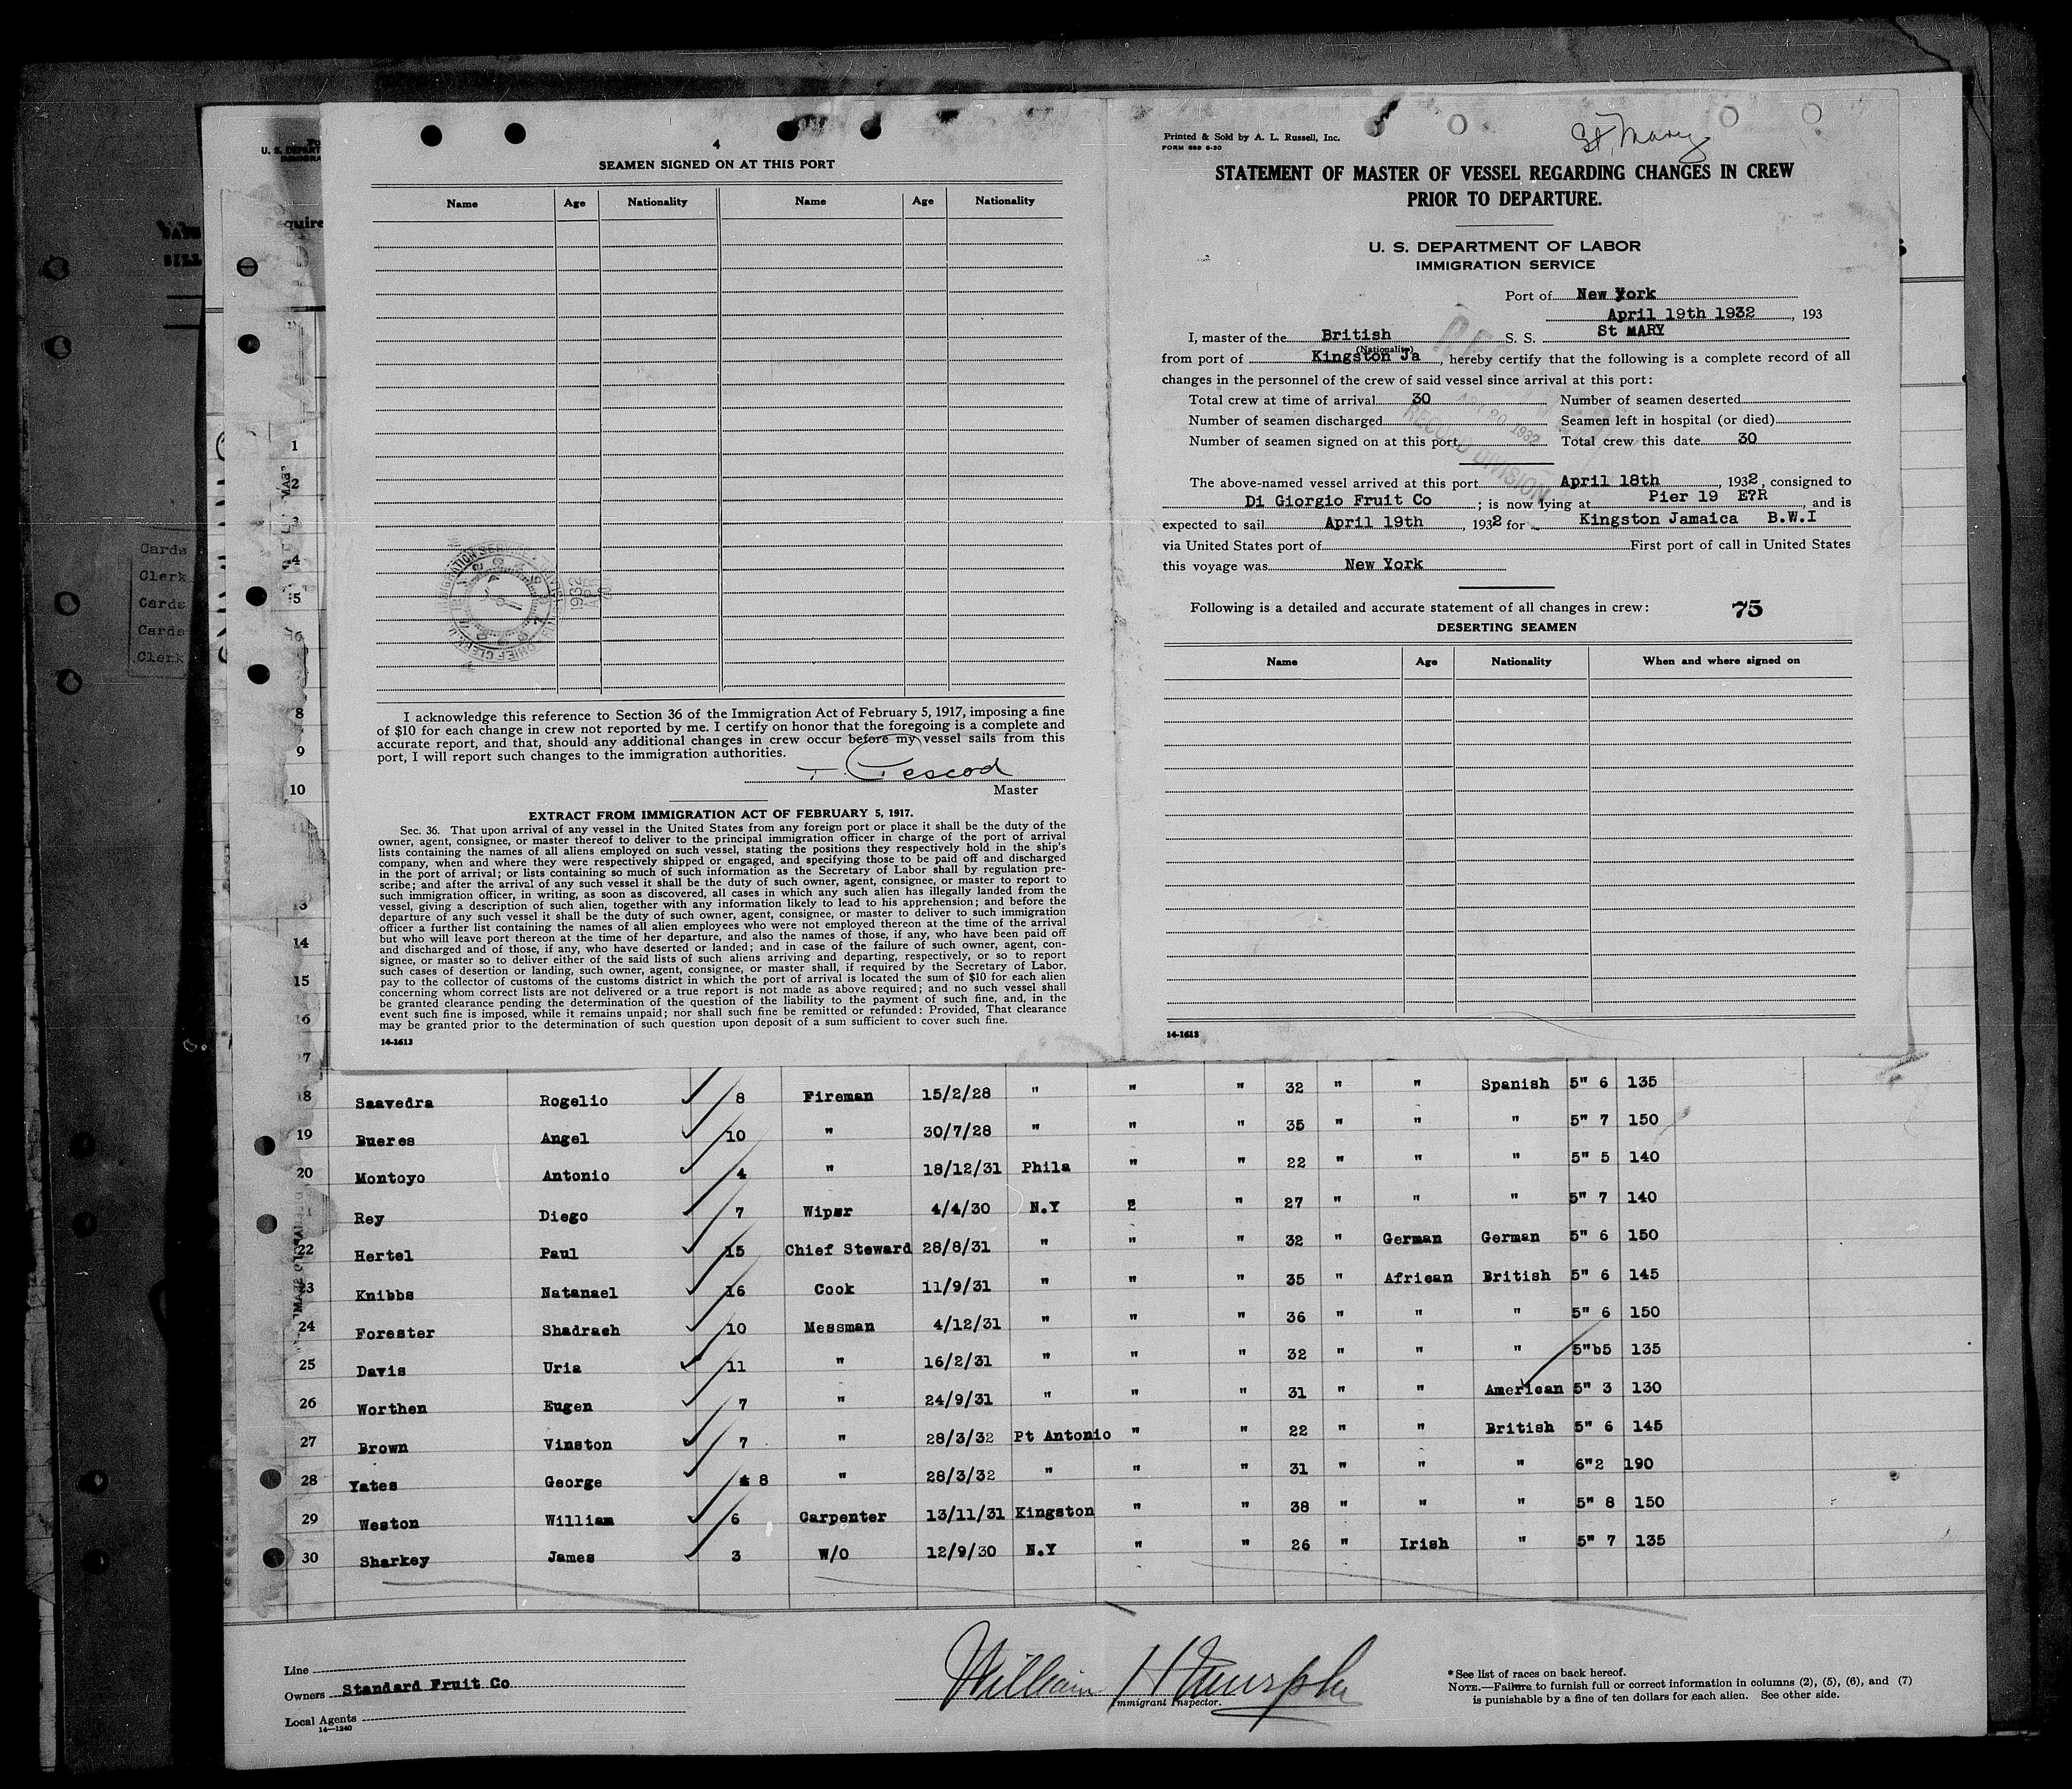 4
SEAMEN SIGNED ON AT THIS PORT
Name Age Nationality Name Age Nationality
I acknowledge this reference to Section 36 of the Immigration Act of February 5, 1917, imposing a fine
of $10 for each change in crew not reported by me. I certify on honor that the foregoing is a complete and
accurate report, and that, should any additional changes in crew occur before my vessel sails from this
port, I will report such changes to the immigration authorities.
Master
EXTRACT FROM IMMIGRATION ACT OF FEBRUARY 5, 1917.
Sec. 36. That upon arrival of any vessel in the United States from any foreign port or place it shall be the duty of the
owner, agent, consignee, or master thereof to deliver to the principal immigration officer in charge of the port of arrival
lists containing the names of all aliens employed on such vessel, stating the positions they respectively hold in the ship's
company, when and where they were respectively shipped or engaged, and specifying those to be paid off and discharged
in the port of arrival; or lists containing so much of such information as the Secretary of Labor shall by regulation pre-
scribe; and after the arrival of any such vessel it shall be the duty of such owner, agent, consignee, or master to report to
such immigration officer, in writing, as soon as discovered, all cases in which any such alien has illegally landed from the
vessel, giving a description of such alien, together with any information likely to lead to his apprehension; and before the
departure of any such vessel it shall be the duty of such owner, agent, consignee, or master to deliver to such immigration
officer a further list containing the names of all alien employees who were not employed thereon at the time of the arrival
but who will leave port thereon at the time of her departure, and also the names of those, if any, who have been paid off
and discharged and of those, if any, who have deserted or landed; and in case of the failure of such owner, agent, con-
signee, or master so to deliver either of the said lists of such aliens arriving and departing, respectively, or so to report
such cases of desertion or landing, such owner, agent, consignee, or master shall, if required by the Secretary of Labor,
pay to the collector of customs of the customs district in which the port of arrival is located the sum of $10 for each alien
concerning whom correct lists are not delivered or a true report is not made as above required; and no such vessel shall
be granted clearance pending the determination of the question of the liability to the payment of such fine, and, in the
event such fine is imposed, while it remains unpaid; nor shall such fine be remitted or refunded: Provided, That clearance
may be granted prior to the determination of such question upon deposit of a sum sufficient to cover such fine.
14-1613
Printed & Sold by A. L. Russell, Inc.
FORM 689 8-30
St. Mary
STATEMENT OF MASTER OF VESSEL REGARDING CHANGES IN CREW
PRIOR TO DEPARTURE.
U. S. DEPARTMENT OF LABOR
IMMIGRATION SERVICE
Port of New York
April 19th 1932, 193
I, master of the British S. S. St MARY
(Nationality)
from port of Kingston Ja, hereby certify that the following is a complete record of all
changes in the personnel of the crew of said vessel since arrival at this port:
Total crew at time of arrival 30 Number of seamen deserted
Number of seamen discharged Seamen left in hospital (or died)
Number of seamen signed on at this port Total crew this date 30
RECORD DIVISION
The above-named vessel arrived at this port April 18th, 1932, consigned to
Di Giorgio Fruit Co; is now lying at Pier 19 E?R, and is
expected to sail April 19th, 1932 for Kingston Jamaica B.W.I
via United States port of First port of call in United States
this voyage was New York
Following is a detailed and accurate statement of all changes in crew: 75
DESERTING SEAMEN
Name Age Nationality When and where signed on
14-1613
Cards
Clerk
Cards
Cards
Clerk
1
2
3
4
5
8
9
10
14
15
18 Saavedra Rogelio 8 Fireman 15/2/28 " " " 32 " " Spanish 5" 6 135
19 Bueres Angel 10 " 30/7/28 " " " 35 " " " 5" 7 150
20 Montoyo Antonio 4 " 18/12/31 Phila " " 22 " " " 5" 5 140
Rey Diego 7 Wiper 4/4/30 N.Y " " 27 " " " 5" 7 140
22 Hertel Paul 15 Chief Steward 28/8/31 " " " 32 " German German 5" 6 150
23 Knibbs Natanael 16 Cook 11/9/31 " " " 35 " African British 5" 6 145
24 Forester Shadrach 10 Messman 4/12/31 " " " 36 " " " 5" 6 150
25 Davis Uria 11 " 16/2/31 " " " 32 " " " 5"b5 135
26 Worthen Eugen 7 " 24/9/31 " " " 31 " " American 5" 3 130
27 Brown Vinston 7 " 28/3/32 Pt Antonio " " 22 " " British 5" 6 145
28 Yates George 8 " 28/3/32 " " " 31 " " " 6"2 190
29 Weston William 6 Carpenter 13/11/31 Kingston " " 38 " " " 5" 8 150
30 Sharkey James 3 W/O 12/9/30 N.Y " " 26 " Irish " 5" 7 135
Line
Owners Standard Fruit Co
Local Agents
14-1240
William H Murphy
Immigrant Inspector.
* See list of races on back hereof.
NOTE.—Failure to furnish full or correct information in columns (2), (5), (6), and (7)
is punishable by a fine of ten dollars for each alien. See other side.